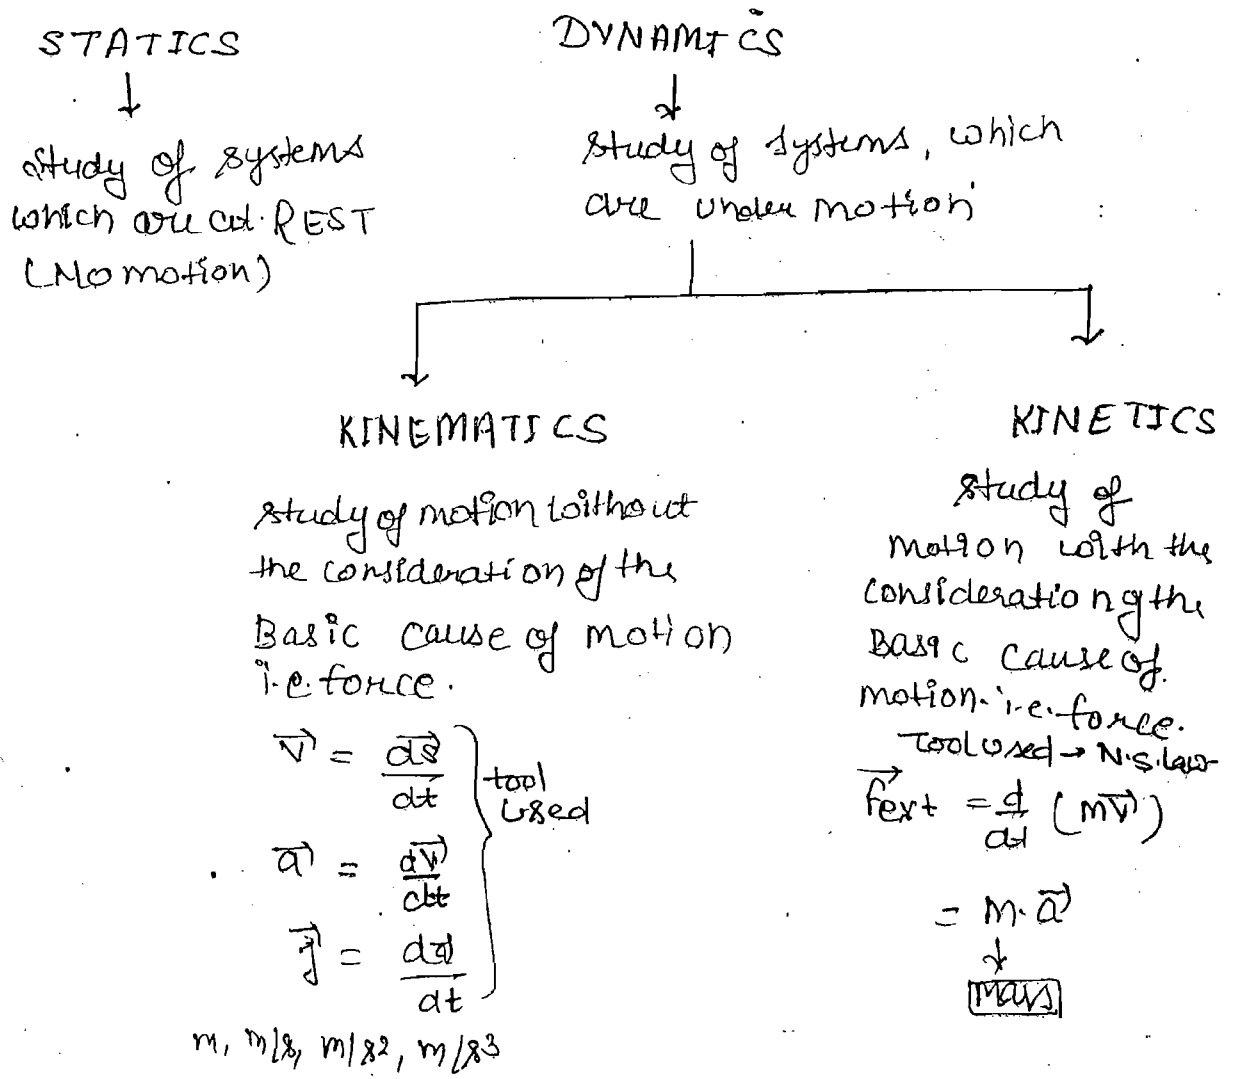 STATICS
↓
study of systems
which are at REST
(No motion)
DYNAMICS
↓
study of systems, which
are under motion
KINEMATICS
study of motion without
the consideration of the
Basic cause of motion
i.e. force.
v⃗ = ds⃗/dt
a⃗ = dv⃗/dt
j⃗ = da⃗/dt
tool
used
m, m/s, m/s2, m/s3
KINETICS
study of
motion with the
consideration of the
Basic cause of
motion. i.e. force.
Tool used → N.S. law
F⃗ext = d/dt (mv⃗)
= m.a⃗
↓
mass